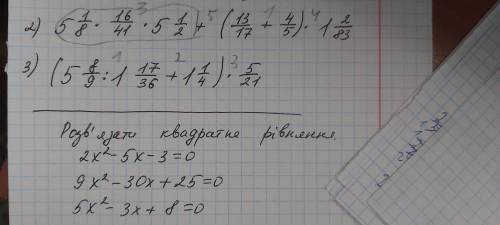 2) 5 1/8 · 16/41 · 5 1/2 + (13/17 + 4/5) · 1 2/83
3) (5 8/9 : 1 17/36 + 1 1/4) · 5/21
Розв'язати квадратне рівняння.
2x² - 5x - 3 = 0
9x² - 30x + 25 = 0
5x² - 3x + 8 = 0